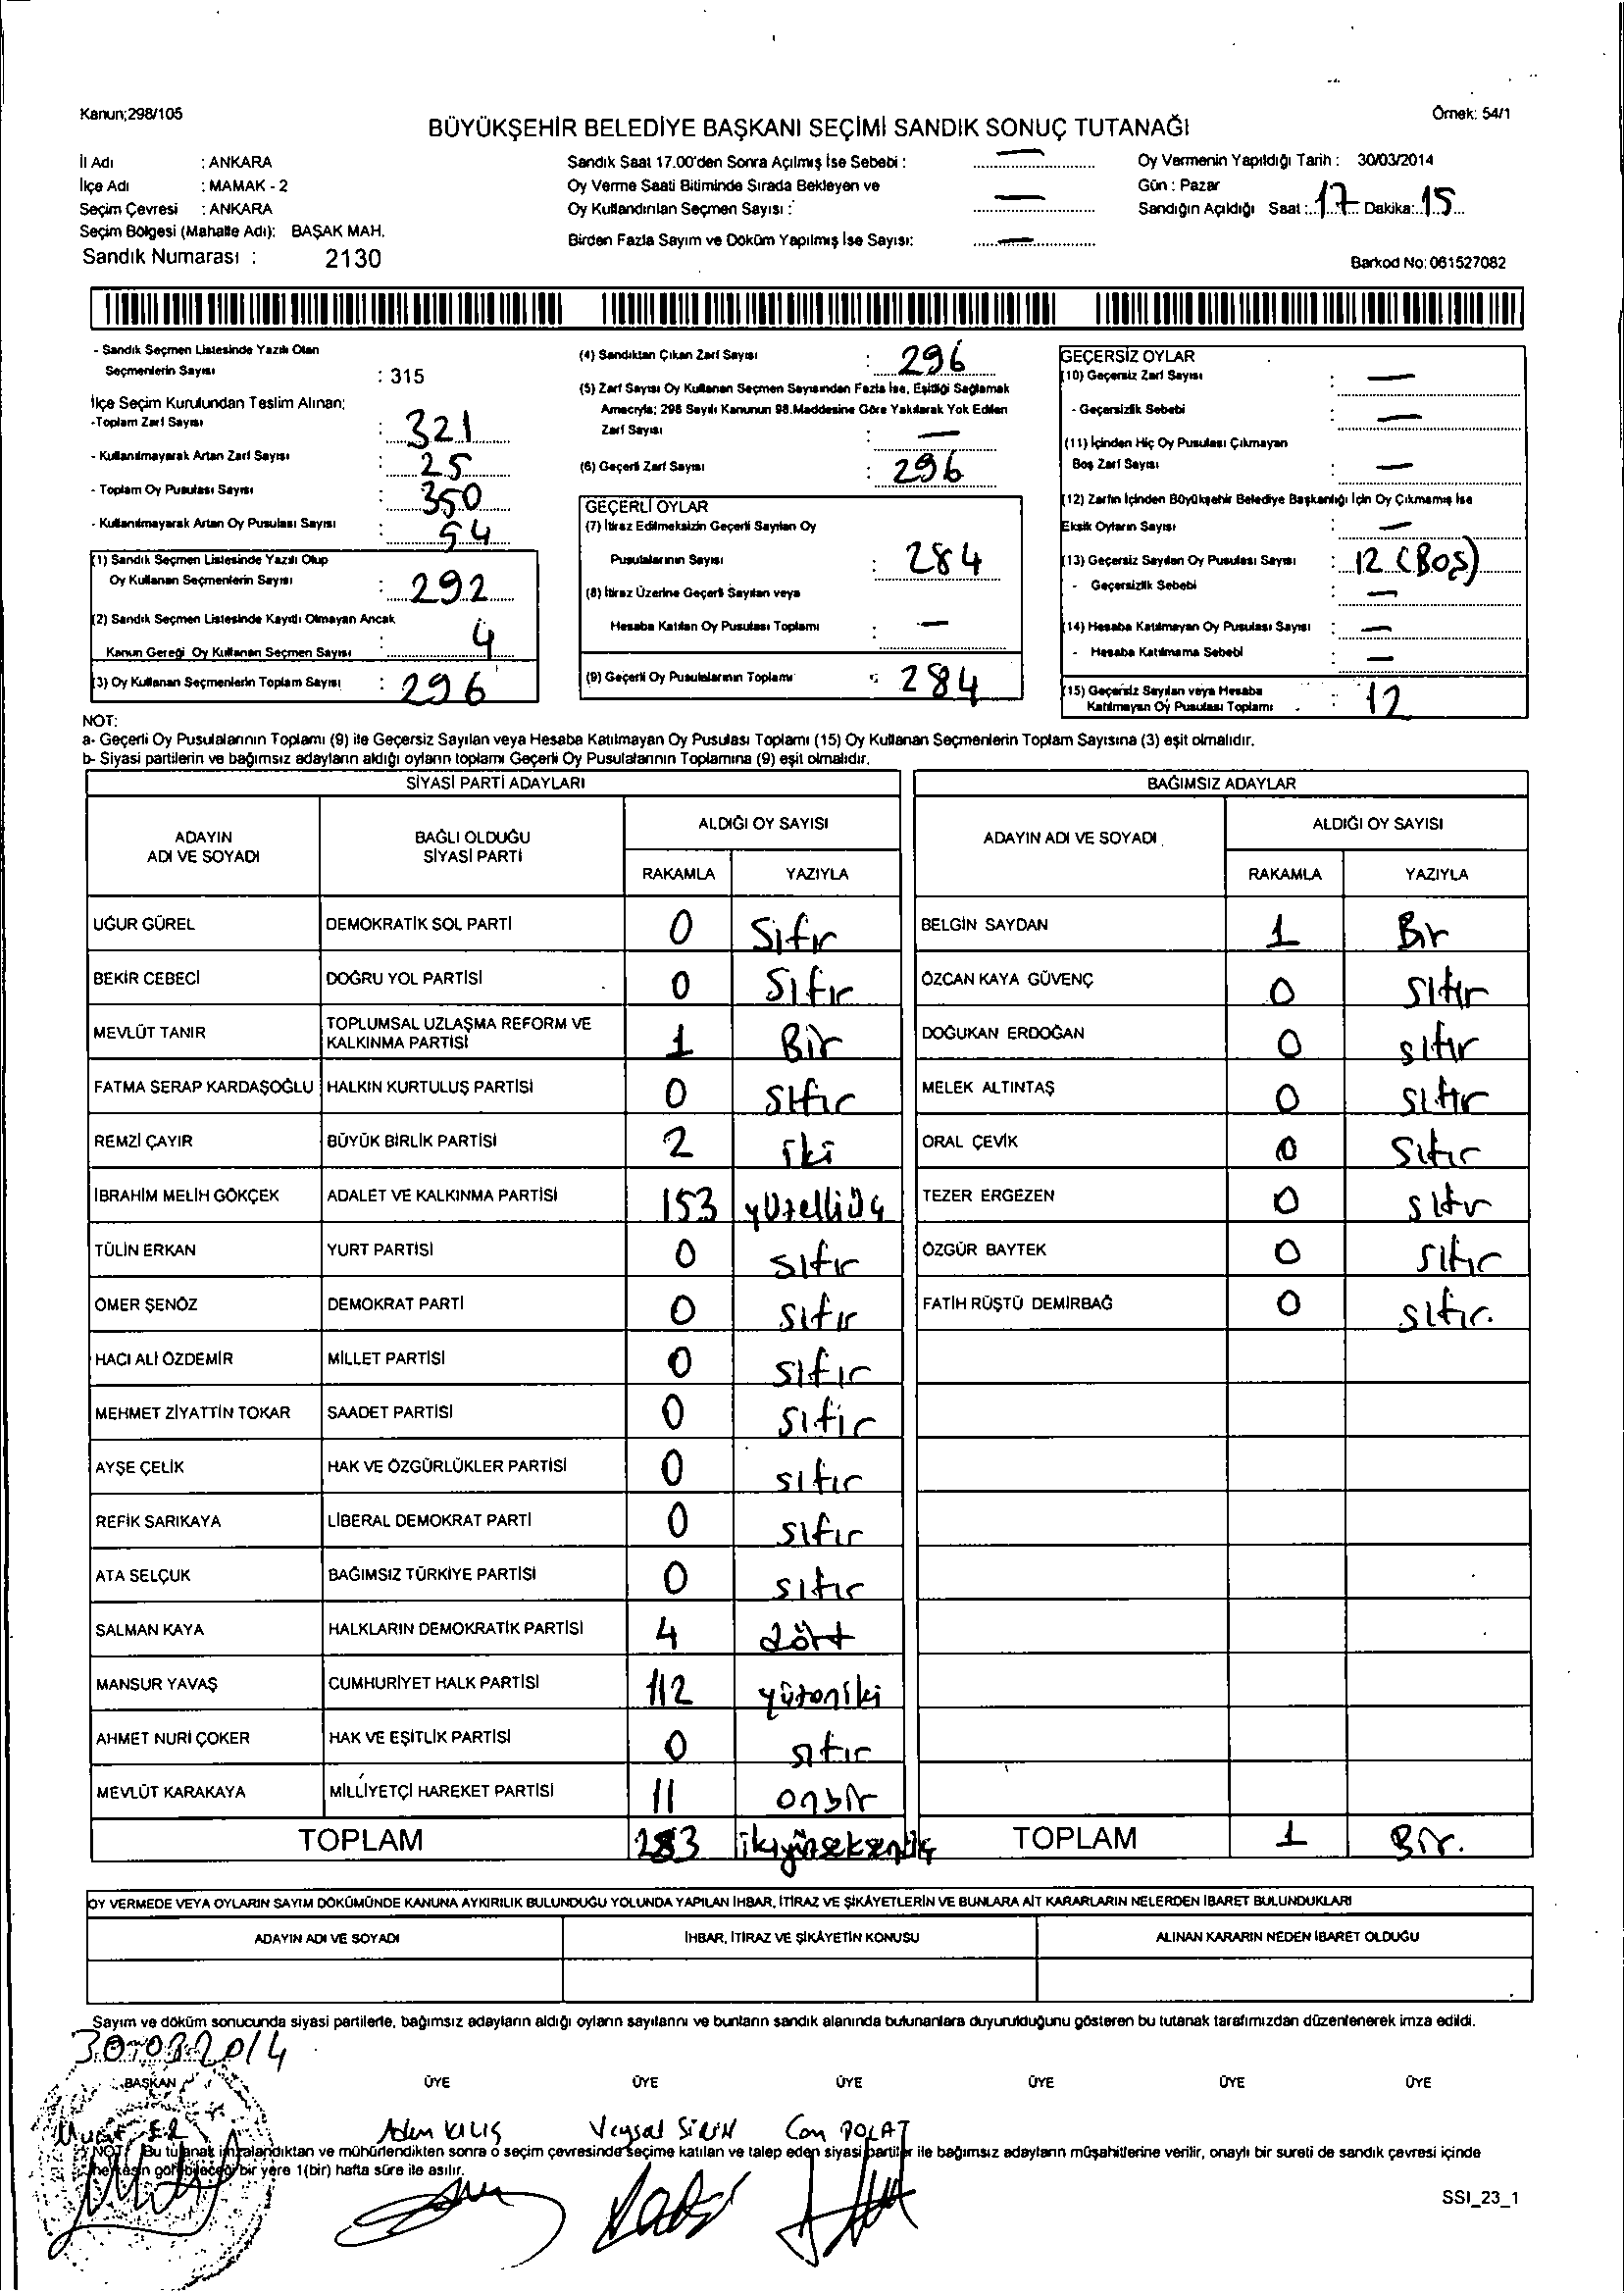 Kanun;298/105
Örnek: 54/1
BÜYÜKŞEHİR BELEDİYE BAŞKANI SEÇİMİ SANDIK SONUÇ TUTANAĞI
İl Adı : ANKARA
İlçe Adı : MAMAK - 2
Seçim Çevresi : ANKARA
Seçim Bölgesi (Mahalle Adı): BAŞAK MAH.
Sandık Numarası : 2130
Sandık Saat 17.00'den Sonra Açılmış İse Sebebi : —
Oy Verme Saati Bitiminde Sırada Bekleyen ve
Oy Kullandırılan Seçmen Sayısı : —
Birden Fazla Sayım ve Döküm Yapılmış İse Sayısı: —
Oy Vermenin Yapıldığı Tarih : 30/03/2014
Gün : Pazar
Sandığın Açıldığı Saat : 17 Dakika: 15
Barkod No: 061527082
- Sandık Seçmen Listesinde Yazılı Olan
Seçmenlerin Sayısı : 315
İlçe Seçim Kurulundan Teslim Alınan;
-Toplam Zarf Sayısı : 321
- Kullanılmayarak Artan Zarf Sayısı : 25
- Toplam Oy Pusulası Sayısı : 350
- Kullanılmayarak Artan Oy Pusulası Sayısı : 54
(1) Sandık Seçmen Listesinde Yazılı Olup
Oy Kullanan Seçmenlerin Sayısı : 292
(2) Sandık Seçmen Listesinde Kayıtlı Olmayan Ancak
Kanun Gereği Oy Kullanan Seçmen Sayısı : 4
(3) Oy Kullanan Seçmenlerin Toplam Sayısı : 296
(4) Sandıktan Çıkan Zarf Sayısı : 296
(5) Zarf Sayısı Oy Kullanan Seçmen Sayısından Fazla İse, Eşitliği Sağlamak
Amacıyla; 298 Sayılı Kanunun 98.Maddesine Göre Yakılarak Yok Edilen
Zarf Sayısı : —
(6) Geçerli Zarf Sayısı : 296
GEÇERLİ OYLAR
(7) İtiraz Edilmeksizin Geçerli Sayılan Oy
Pusulalarının Sayısı : 284
(8) İtiraz Üzerine Geçerli Sayılan veya
Hesaba Katılan Oy Pusulası Toplamı : —
(9) Geçerli Oy Pusulalarının Toplamı : 284
GEÇERSİZ OYLAR
(10) Geçersiz Zarf Sayısı : —
- Geçersizlik Sebebi : —
(11) İçinden Hiç Oy Pusulası Çıkmayan
Boş Zarf Sayısı : —
(12) Zarfın İçinden Büyükşehir Belediye Başkanlığı İçin Oy Çıkmamış İse
Eksik Oyların Sayısı : —
(13) Geçersiz Sayılan Oy Pusulası Sayısı : 12 (Boş)
- Geçersizlik Sebebi : —
(14) Hesaba Katılmayan Oy Pusulası Sayısı : —
- Hesaba Katılmama Sebebi : —
(15) Geçersiz Sayılan veya Hesaba
Katılmayan Oy Pusulası Toplamı : 12
NOT:
a- Geçerli Oy Pusulalarının Toplamı (9) ile Geçersiz Sayılan veya Hesaba Katılmayan Oy Pusulası Toplamı (15) Oy Kullanan Seçmenlerin Toplam Sayısına (3) eşit olmalıdır.
b- Siyasi partilerin ve bağımsız adayların aldığı oyların toplamı Geçerli Oy Pusulalarının Toplamına (9) eşit olmalıdır.
SİYASİ PARTİ ADAYLARI
ADAYIN ADI VE SOYADI BAĞLI OLDUĞU SİYASİ PARTİ ALDIĞI OY SAYISI
RAKAMLA YAZIYLA
UĞUR GÜREL DEMOKRATİK SOL PARTİ 0 Sıfır
BEKİR CEBECİ DOĞRU YOL PARTİSİ 0 Sıfır
MEVLÜT TANIR TOPLUMSAL UZLAŞMA REFORM VE KALKINMA PARTİSİ 1 Bir
FATMA SERAP KARDAŞOĞLU HALKIN KURTULUŞ PARTİSİ 0 Sıfır
REMZİ ÇAYIR BÜYÜK BİRLİK PARTİSİ 2 iki
İBRAHİM MELİH GÖKÇEK ADALET VE KALKINMA PARTİSİ 153 yüzelliüç
TÜLİN ERKAN YURT PARTİSİ 0 sıfır
ÖMER ŞENÖZ DEMOKRAT PARTİ 0 sıfır
HACI ALİ ÖZDEMİR MİLLET PARTİSİ 0 sıfır
MEHMET ZİYATTİN TOKAR SAADET PARTİSİ 0 sıfır
AYŞE ÇELİK HAK VE ÖZGÜRLÜKLER PARTİSİ 0 sıfır
REFİK SARIKAYA LİBERAL DEMOKRAT PARTİ 0 sıfır
ATA SELÇUK BAĞIMSIZ TÜRKİYE PARTİSİ 0 sıfır
SALMAN KAYA HALKLARIN DEMOKRATİK PARTİSİ 4 dört
MANSUR YAVAŞ CUMHURİYET HALK PARTİSİ 112 yüzoniki
AHMET NURİ ÇOKER HAK VE EŞİTLİK PARTİSİ 0 sıfır
MEVLÜT KARAKAYA MİLLİYETÇİ HAREKET PARTİSİ 11 onbir
TOPLAM 283 ikiyüzseksenüç
BAĞIMSIZ ADAYLAR
ADAYIN ADI VE SOYADI ALDIĞI OY SAYISI
RAKAMLA YAZIYLA
BELGİN SAYDAN 1 Bir
ÖZCAN KAYA GÜVENÇ 0 sıfır
DOĞUKAN ERDOĞAN 0 sıfır
MELEK ALTINTAŞ 0 sıfır
ORAL ÇEVİK 0 sıfır
TEZER ERGEZEN 0 sıfır
ÖZGÜR BAYTEK 0 sıfır
FATİH RÜŞTÜ DEMİRBAĞ 0 sıfır.
TOPLAM 1 Bir.
OY VERMEDE VEYA OYLARIN SAYIM DÖKÜMÜNDE KANUNA AYKIRILIK BULUNDUĞU YOLUNDA YAPILAN İHBAR, İTİRAZ VE ŞİKÂYETLERİN VE BUNLARA AİT KARARLARIN NELERDEN İBARET BULUNDUKLARI
ADAYIN ADI VE SOYADI İHBAR, İTİRAZ VE ŞİKÂYETİN KONUSU ALINAN KARARIN NEDEN İBARET OLDUĞU
Sayım ve döküm sonucunda siyasi partilerle, bağımsız adayların aldığı oyların sayılarını ve bunların sandık alanında bulunanlara duyurulduğunu gösteren bu tutanak tarafımızdan düzenlenerek imza edildi.
30-03-2014
BAŞKAN ÜYE ÜYE ÜYE ÜYE ÜYE ÜYE
Adem KILIŞ Veysal SİRİN Can POLAT
NOT: Bu tutanak imzalandıktan ve mühürlendikten sonra o seçim çevresinde seçime katılan ve talep eden siyasi partiler ile bağımsız adayların müşahitlerine verilir, onaylı bir sureti de sandık çevresi içinde
herkesin görebileceği bir yere 1(bir) hafta süre ile asılır.
SSI_23_1